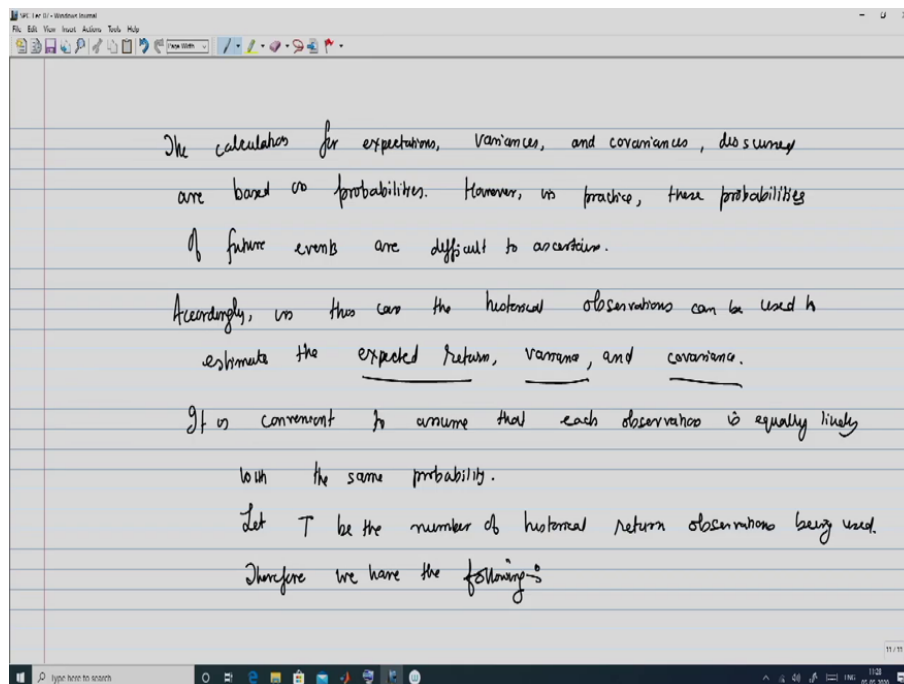 SPC Lec 07 - Windows Journal
File Edit View Insert Actions Tools Help
Page Width
The calculation for expectations, variances, and covariances, discussed
are based on probabilities. However, in practice, these probabilities
of future events are difficult to ascertain.
Accordingly, in this case the historical observations can be used to
estimate the expected return, variance, and covariance.
It is convenient to assume that each observation is equally likely
with the same probability.
Let T be the number of historical return observations being used.
Therefore we have the following:
11 / 11
Type here to search
ENG
11:28